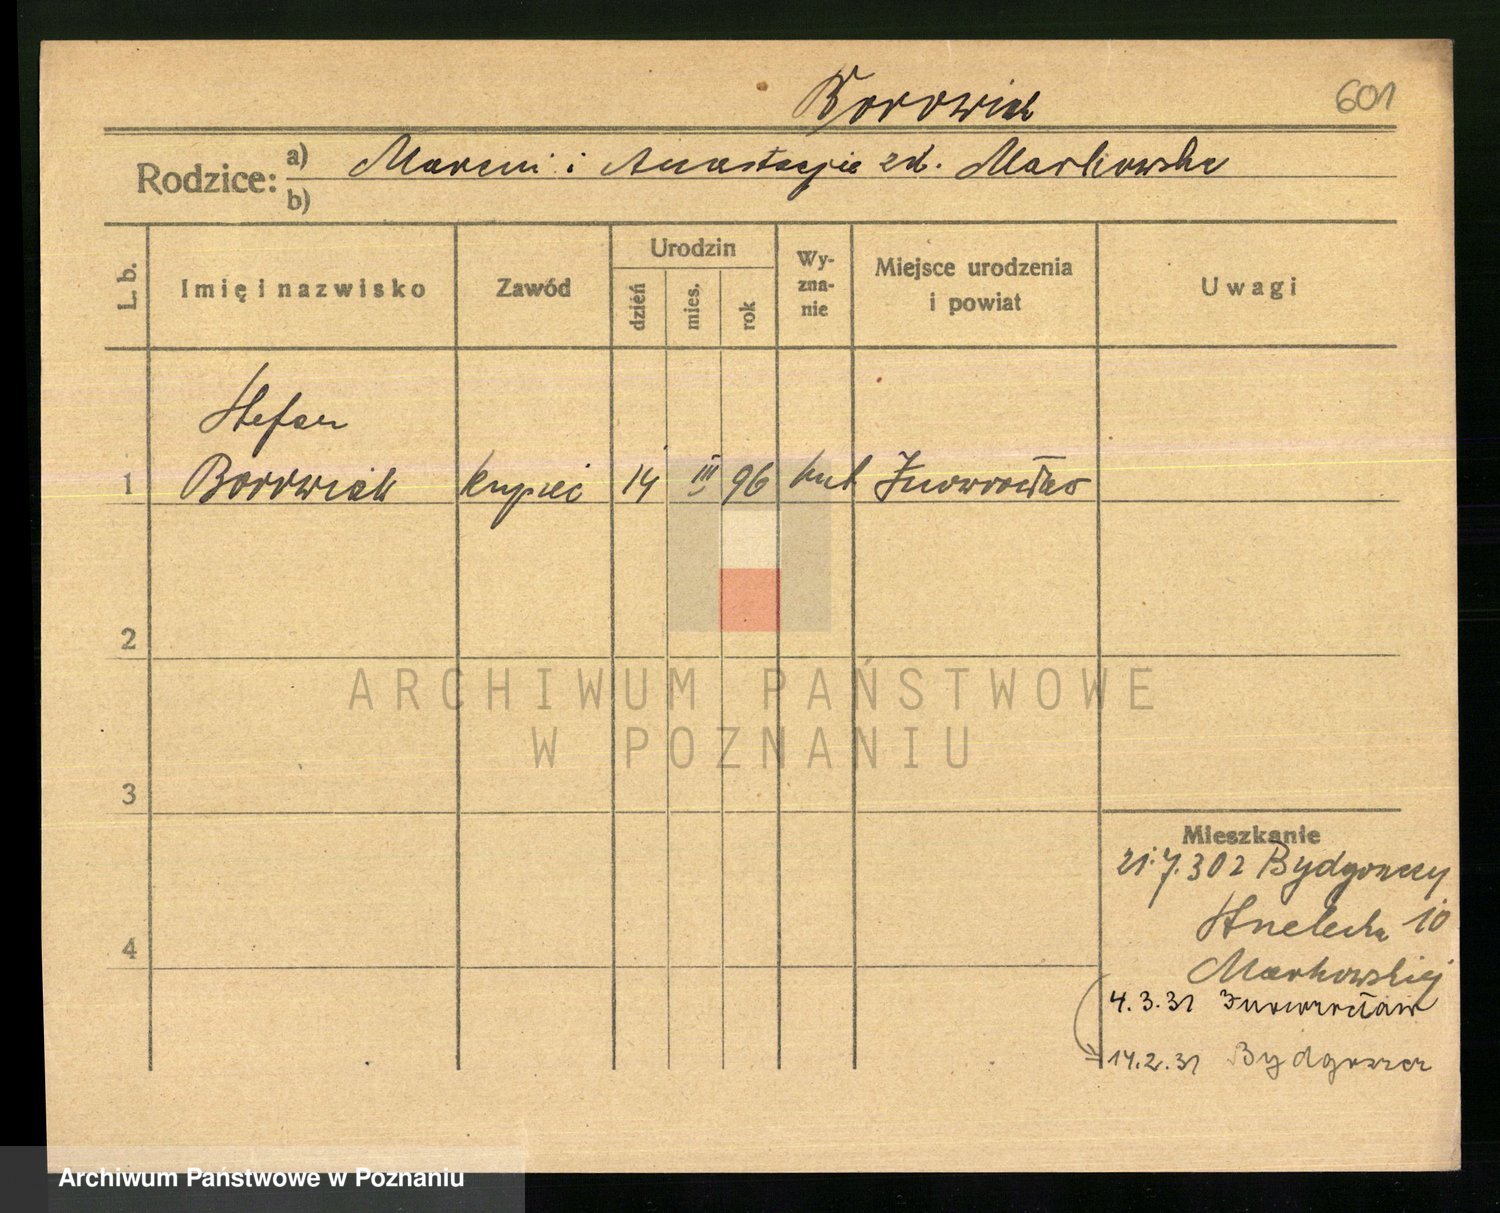 Borowiak
601
Rodzice: a) Marcin i Anastazja zd. Markowska
b)
L. b.
Imię i nazwisko
Zawód
Urodzin
dzień
mies.
rok
Wy-
zna-
nie
Miejsce urodzenia
i powiat
Uwagi
Stefan
1 Borowiak kupiec 14 III 96 kat Inowrocław
2
3
4
Mieszkanie
21.7.30 z Bydgoszczy
Strzelecka 10
Markowskiej
4.3.31 Inowrocław
14.2.31 Bydgoszcz
ARCHIWUM PAŃSTWOWE
W POZNANIU
Archiwum Państwowe w Poznaniu